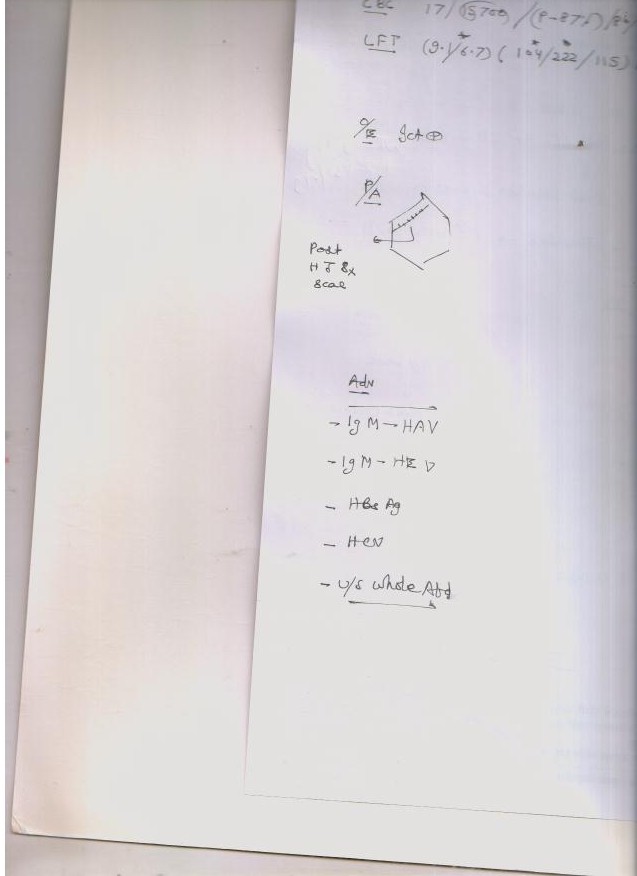 CBC 17/15700/(P-87%)
LFT (9.1/6.7) (104/222/115)
O/E Jct ⊕
P/A
Post
HJ Sx
Scar
Adv
→ IgM - HAV
- IgM - HEV
- HBs Ag
- HCV
- U/S whole Abd